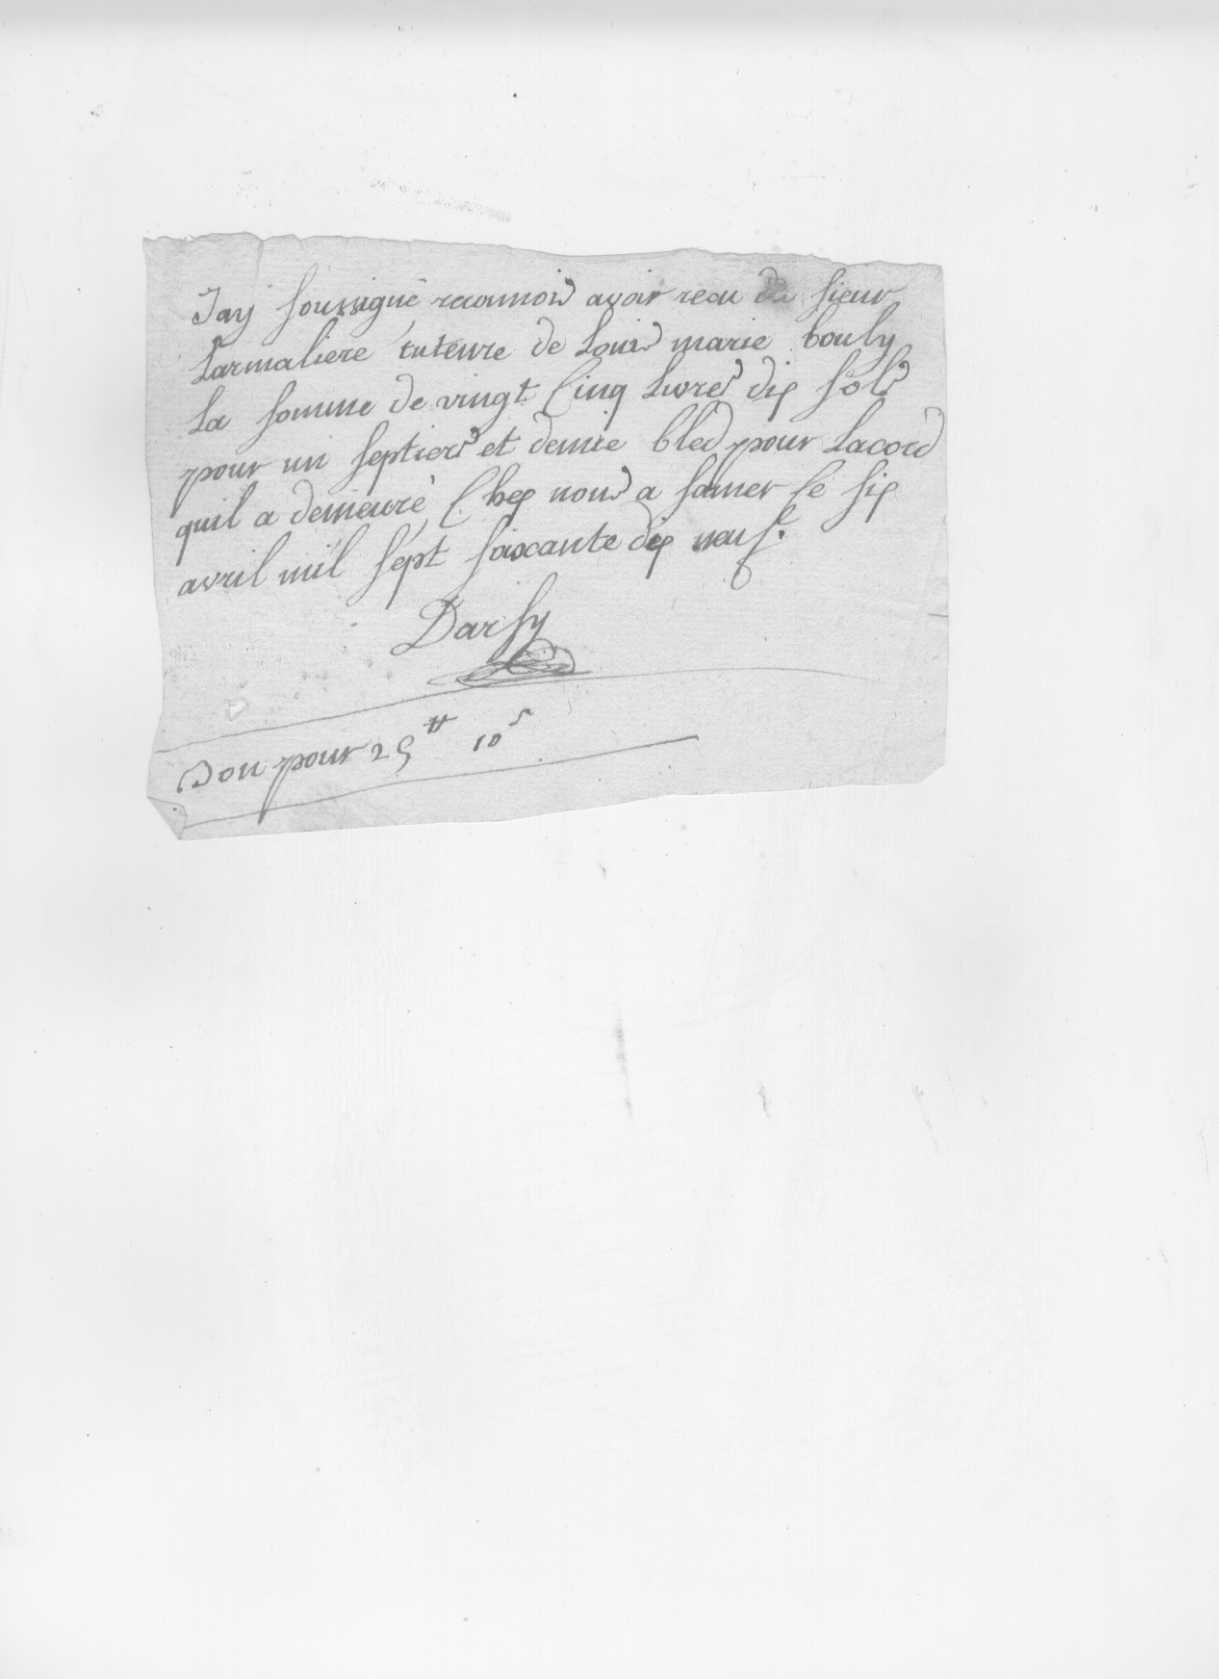 Jay soussigné reconnois avoir recu du sieur
Larmaliere tuteure de Louis marie bouly
La somme de vingt Cinq Livres dix sols
pour un septiers et demie bled pour Lacord
quil a demeuré Chez nous a samer le six
avril mil sept soixante dix neuf.
Darsy
Bon pour 25tt 10s